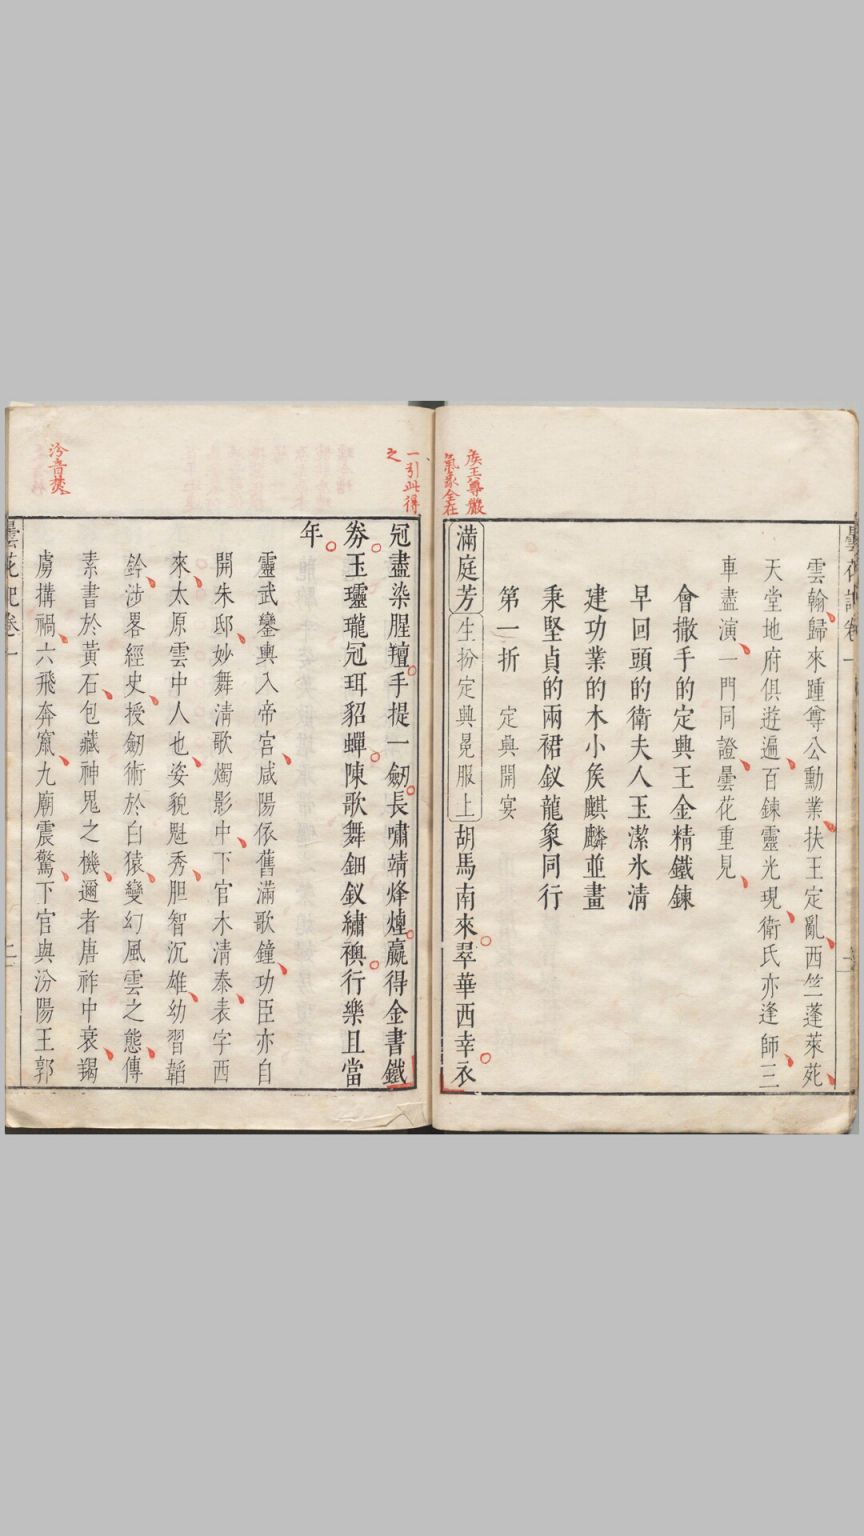 侯王尊嚴
氣象全在
一引此得
之
汾音焚
曇花記卷一
雲翰歸來踵尊公勳業扶王定亂西竺蓬萊苑
天堂地府俱遊遍百鍊靈光現衛氏亦逢師三
車盡演一門同證曇花重見
會撒手的定興王金精鐵鍊
早回頭的衛夫人玉潔氷清
建功業的木小矦麒麟並畫
秉堅貞的兩裙釵龍象同行
第一折 定興開宴
滿庭芳生扮定興冕服上胡馬南來翠華西幸衣
冠盡染腥羶手提一劒長嘯靖烽煙贏得金書鐵
劵玉瓏冠珥貂蟬陳歌舞鈿釵繡襖行樂且當
年
靈武鑾輿入帝宮咸陽依舊滿歌鐘功臣亦自
開朱邸妙舞清歌燭影中下官木清泰表字西
來太原雲中人也姿貌魁秀胆智沉雄幼習韜
鈐涉畧經史授劒術於白猿變幻風雲之態傳
素書於黃石包藏神鬼之機邇者唐祚中衰羯
虜搆禍六飛奔竄九廟震驚下官與汾陽王郭
曇花記卷一